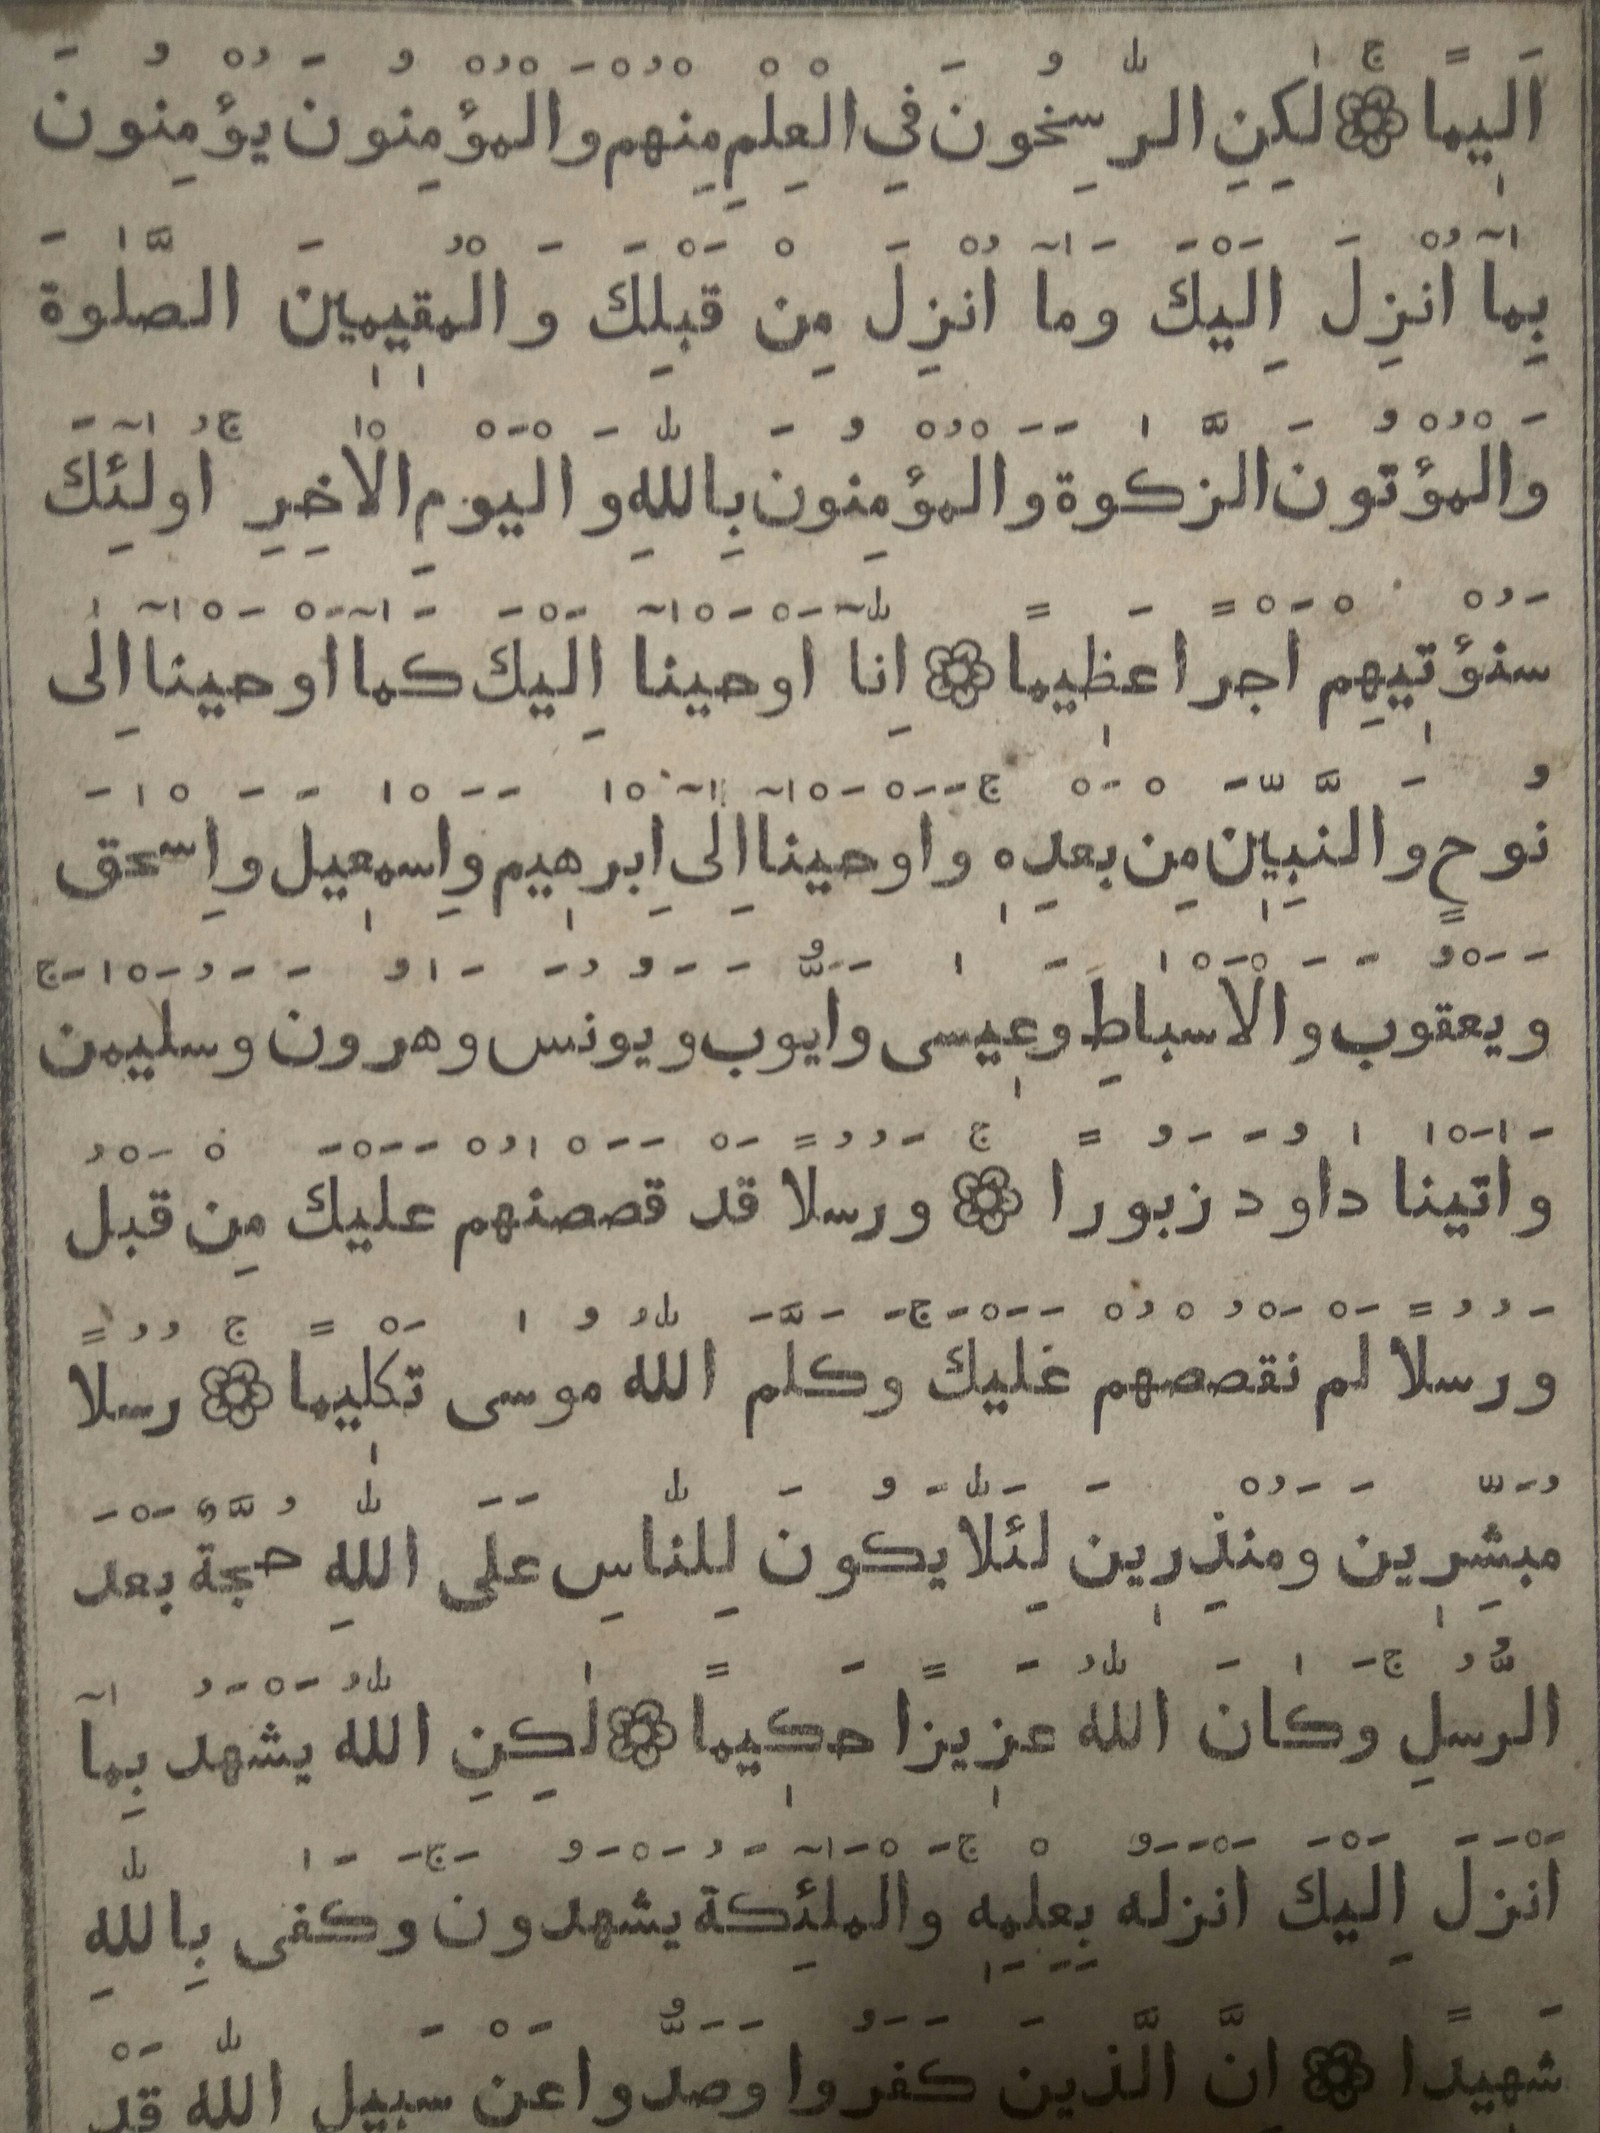 اَلِيمًا ۝ لٰكِنِ الرّٰسِخُونَ فِي الْعِلْمِ مِنْهُمْ وَالْمُؤْمِنُونَ يُؤْمِنُونَ
بِمَآ اُنْزِلَ اِلَيْكَ وَمَآ اُنْزِلَ مِنْ قَبْلِكَ وَالْمُقِيمِينَ الصَّلٰوةَ
وَالْمُؤْتُونَ الزَّكٰوةَ وَالْمُؤْمِنُونَ بِاللّٰهِ وَالْيَوْمِ الْاٰخِرِ ۚ اُولٰٓئِكَ
سَنُؤْتِيهِمْ اَجْرًا عَظِيمًا ۝ اِنَّآ اَوْحَيْنَآ اِلَيْكَ كَمَآ اَوْحَيْنَآ اِلٰى
نُوحٍ وَالنَّبِيّٖنَ مِنْ بَعْدِهٖ ۚ وَاَوْحَيْنَآ اِلٰٓى اِبْرٰهِيمَ وَاِسْمٰعِيلَ وَاِسْحٰقَ
وَيَعْقُوبَ وَالْاَسْبَاطِ وَعِيسٰى وَاَيُّوبَ وَيُونُسَ وَهٰرُونَ وَسُلَيْمٰنَ ۚ
وَاٰتَيْنَا دَاوٗدَ زَبُورًا ۝ وَرُسُلًا قَدْ قَصَصْنٰهُمْ عَلَيْكَ مِنْ قَبْلُ
وَرُسُلًا لَمْ نَقْصُصْهُمْ عَلَيْكَ ۚ وَكَلَّمَ اللّٰهُ مُوسٰى تَكْلِيمًا ۝ رُسُلًا
مُبَشِّرِينَ وَمُنْذِرِينَ لِئَلَّا يَكُونَ لِلنَّاسِ عَلَى اللّٰهِ حُجَّةٌ بَعْدَ
الرُّسُلِ ۚ وَكَانَ اللّٰهُ عَزِيزًا حَكِيمًا ۝ لٰكِنِ اللّٰهُ يَشْهَدُ بِمَآ
اَنْزَلَ اِلَيْكَ اَنْزَلَهُ بِعِلْمِهٖ ۚ وَالْمَلٰٓئِكَةُ يَشْهَدُونَ ۚ وَكَفٰى بِاللّٰهِ
شَهِيدًا ۝ اِنَّ الَّذِينَ كَفَرُوا وَصَدُّوا عَنْ سَبِيلِ اللّٰهِ قَدْ